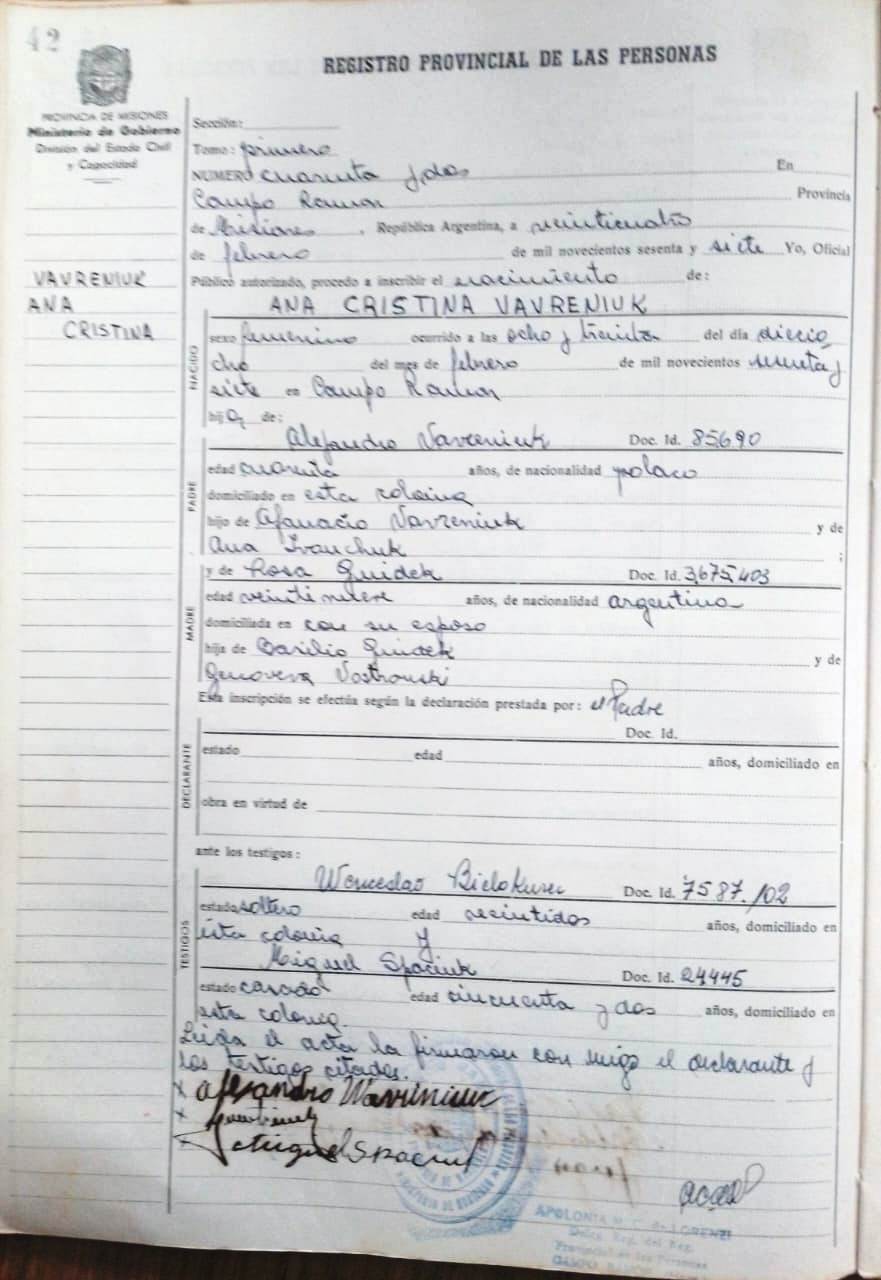 42
REGISTRO PROVINCIAL DE LAS PERSONAS
PROVINCIA DE MISIONES
Ministerio de Gobierno
Dirección del Estado Civil
y Capacidad
Sección:
Tomo: primero
NUMERO cuarenta y dos En
Campo Ramon Provincia
de Misiones, República Argentina, a veinticuatro
de febrero de mil novecientos sesenta y siete Yo, Oficial
Público autorizado, procedo a inscribir el nacimiento de:
VAVRENIUK
ANA
CRISTINA
ANA CRISTINA VAVRENIUK
NACIDO
sexo femenino ocurrido a las ocho y treinta del día diecio
cho del mes de febrero de mil novecientos sesenta y
siete en Campo Ramon
hija de:
PADRE
Alejandro Vavreniuk Doc. Id. 85690
edad cuarenta años, de nacionalidad polaco
domiciliado en esta colonia
hijo de Afanacio Vavreniuk y de
Ana Ivanchuk ;
MADRE
y de Rosa Guidek Doc. Id. 3,675,403
edad veintinueve años, de nacionalidad argentina
domiciliada en con su esposo
hija de Basilio Guidek y de
Genoveva Vostrouski
Esta inscripción se efectúa según la declaración prestada por: el Padre
Doc. Id.
DECLARANTE
estado edad años, domiciliado en
obra en virtud de
ante los testigos:
TESTIGOS
Wenceslao Bielokurec Doc. Id. 7587.102
estado soltero edad veintidos años, domiciliado en
esta colonia y
Miguel Spaciuk Doc. Id. 24445
estado casado edad cincuenta y dos años, domiciliado en
esta colonia
Leida el acta la firmaron con migo el declarante y
los testigos citados.
x Alejandro Wavriniuk
x
x Miguel Spaciuk
APOLONIA M. C. de LORENZI
Deleg. Reg. del Reg.
Provincial de las Personas
CAMPO RAMON